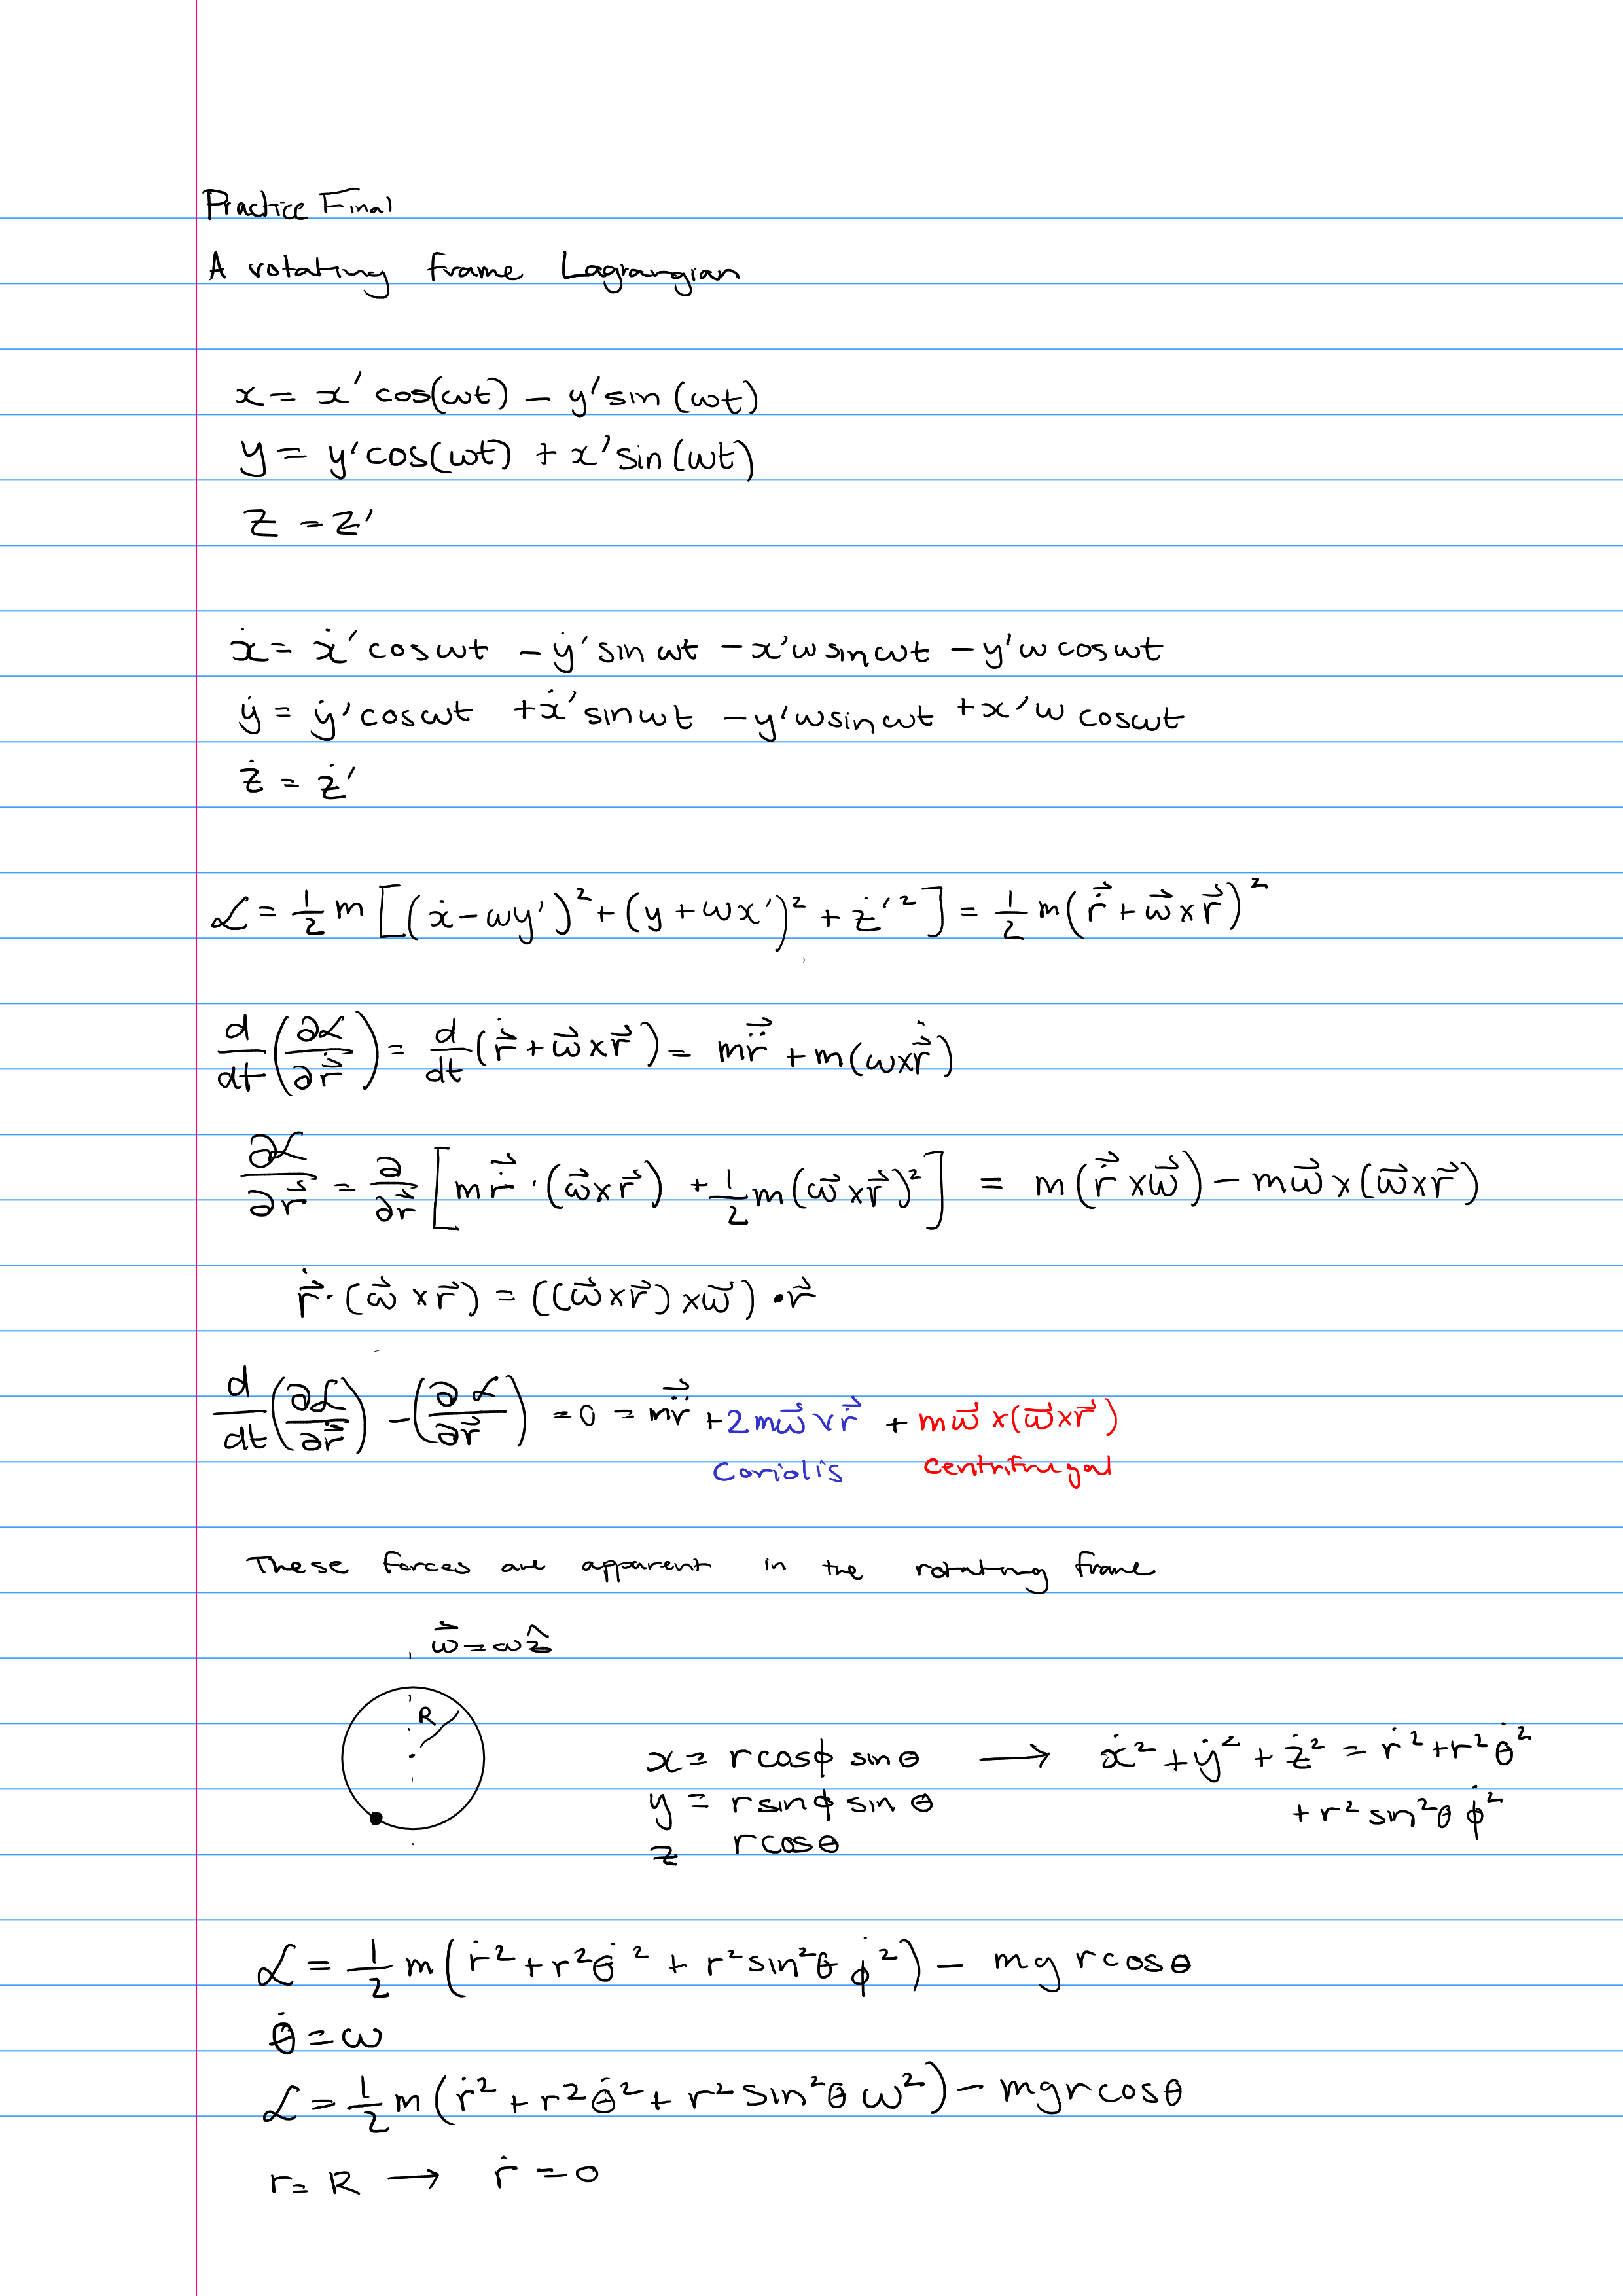 Practice Final
A rotating frame Lagrangian
x = x' cos(ωt) − y' sin(ωt)
y = y' cos(ωt) + x' sin(ωt)
z = z'
ẋ = ẋ' cos ωt − ẏ' sin ωt − x'ω sin ωt − y'ω cos ωt
ẏ = ẏ' cos ωt + ẋ' sin ωt − y'ω sin ωt + x'ω cos ωt
ż = ż'
ℒ = 1/2 m [(ẋ − ωy')² + (y + ωx')² + ż'²] = 1/2 m(ṙ⃗ + ω⃗ × r⃗)²
d/dt (∂ℒ/∂ṙ⃗) = d/dt (ṙ⃗ + ω⃗ × r⃗) = m r̈⃗ + m(ω × ṙ⃗)
∂ℒ/∂r⃗ = ∂/∂r⃗ [m ṙ⃗ · (ω⃗ × r⃗) + 1/2 m(ω⃗ × r⃗)²] = m(ṙ⃗ × ω⃗) − m ω⃗ × (ω⃗ × r⃗)
ṙ⃗ · (ω⃗ × r⃗) = ((ω⃗ × r⃗) × ω⃗) • r⃗
d/dt (∂ℒ/∂ṙ⃗) − (∂ℒ/∂r⃗) = 0 = m r̈⃗ + 2mω⃗ × ṙ⃗ + mω⃗ × (ω⃗ × r⃗)
Coriolis centrifugal
These forces are apparent in the rotating frame
ω⃗ = ωẑ
R
x = r cosϕ sin θ → ẋ² + ẏ² + ż² = ṙ² + r² θ̇²
y = r sinϕ sin θ + r² sin²θ ϕ̇²
z r cosθ
ℒ = 1/2 m(ṙ² + r²θ̇² + r² sin²θ ϕ̇²) − mg r cosθ
θ̇ = ω
ℒ = 1/2 m(ṙ² + r²θ̇² + r² sin²θ ω²) − mg r cosθ
r = R → ṙ = 0